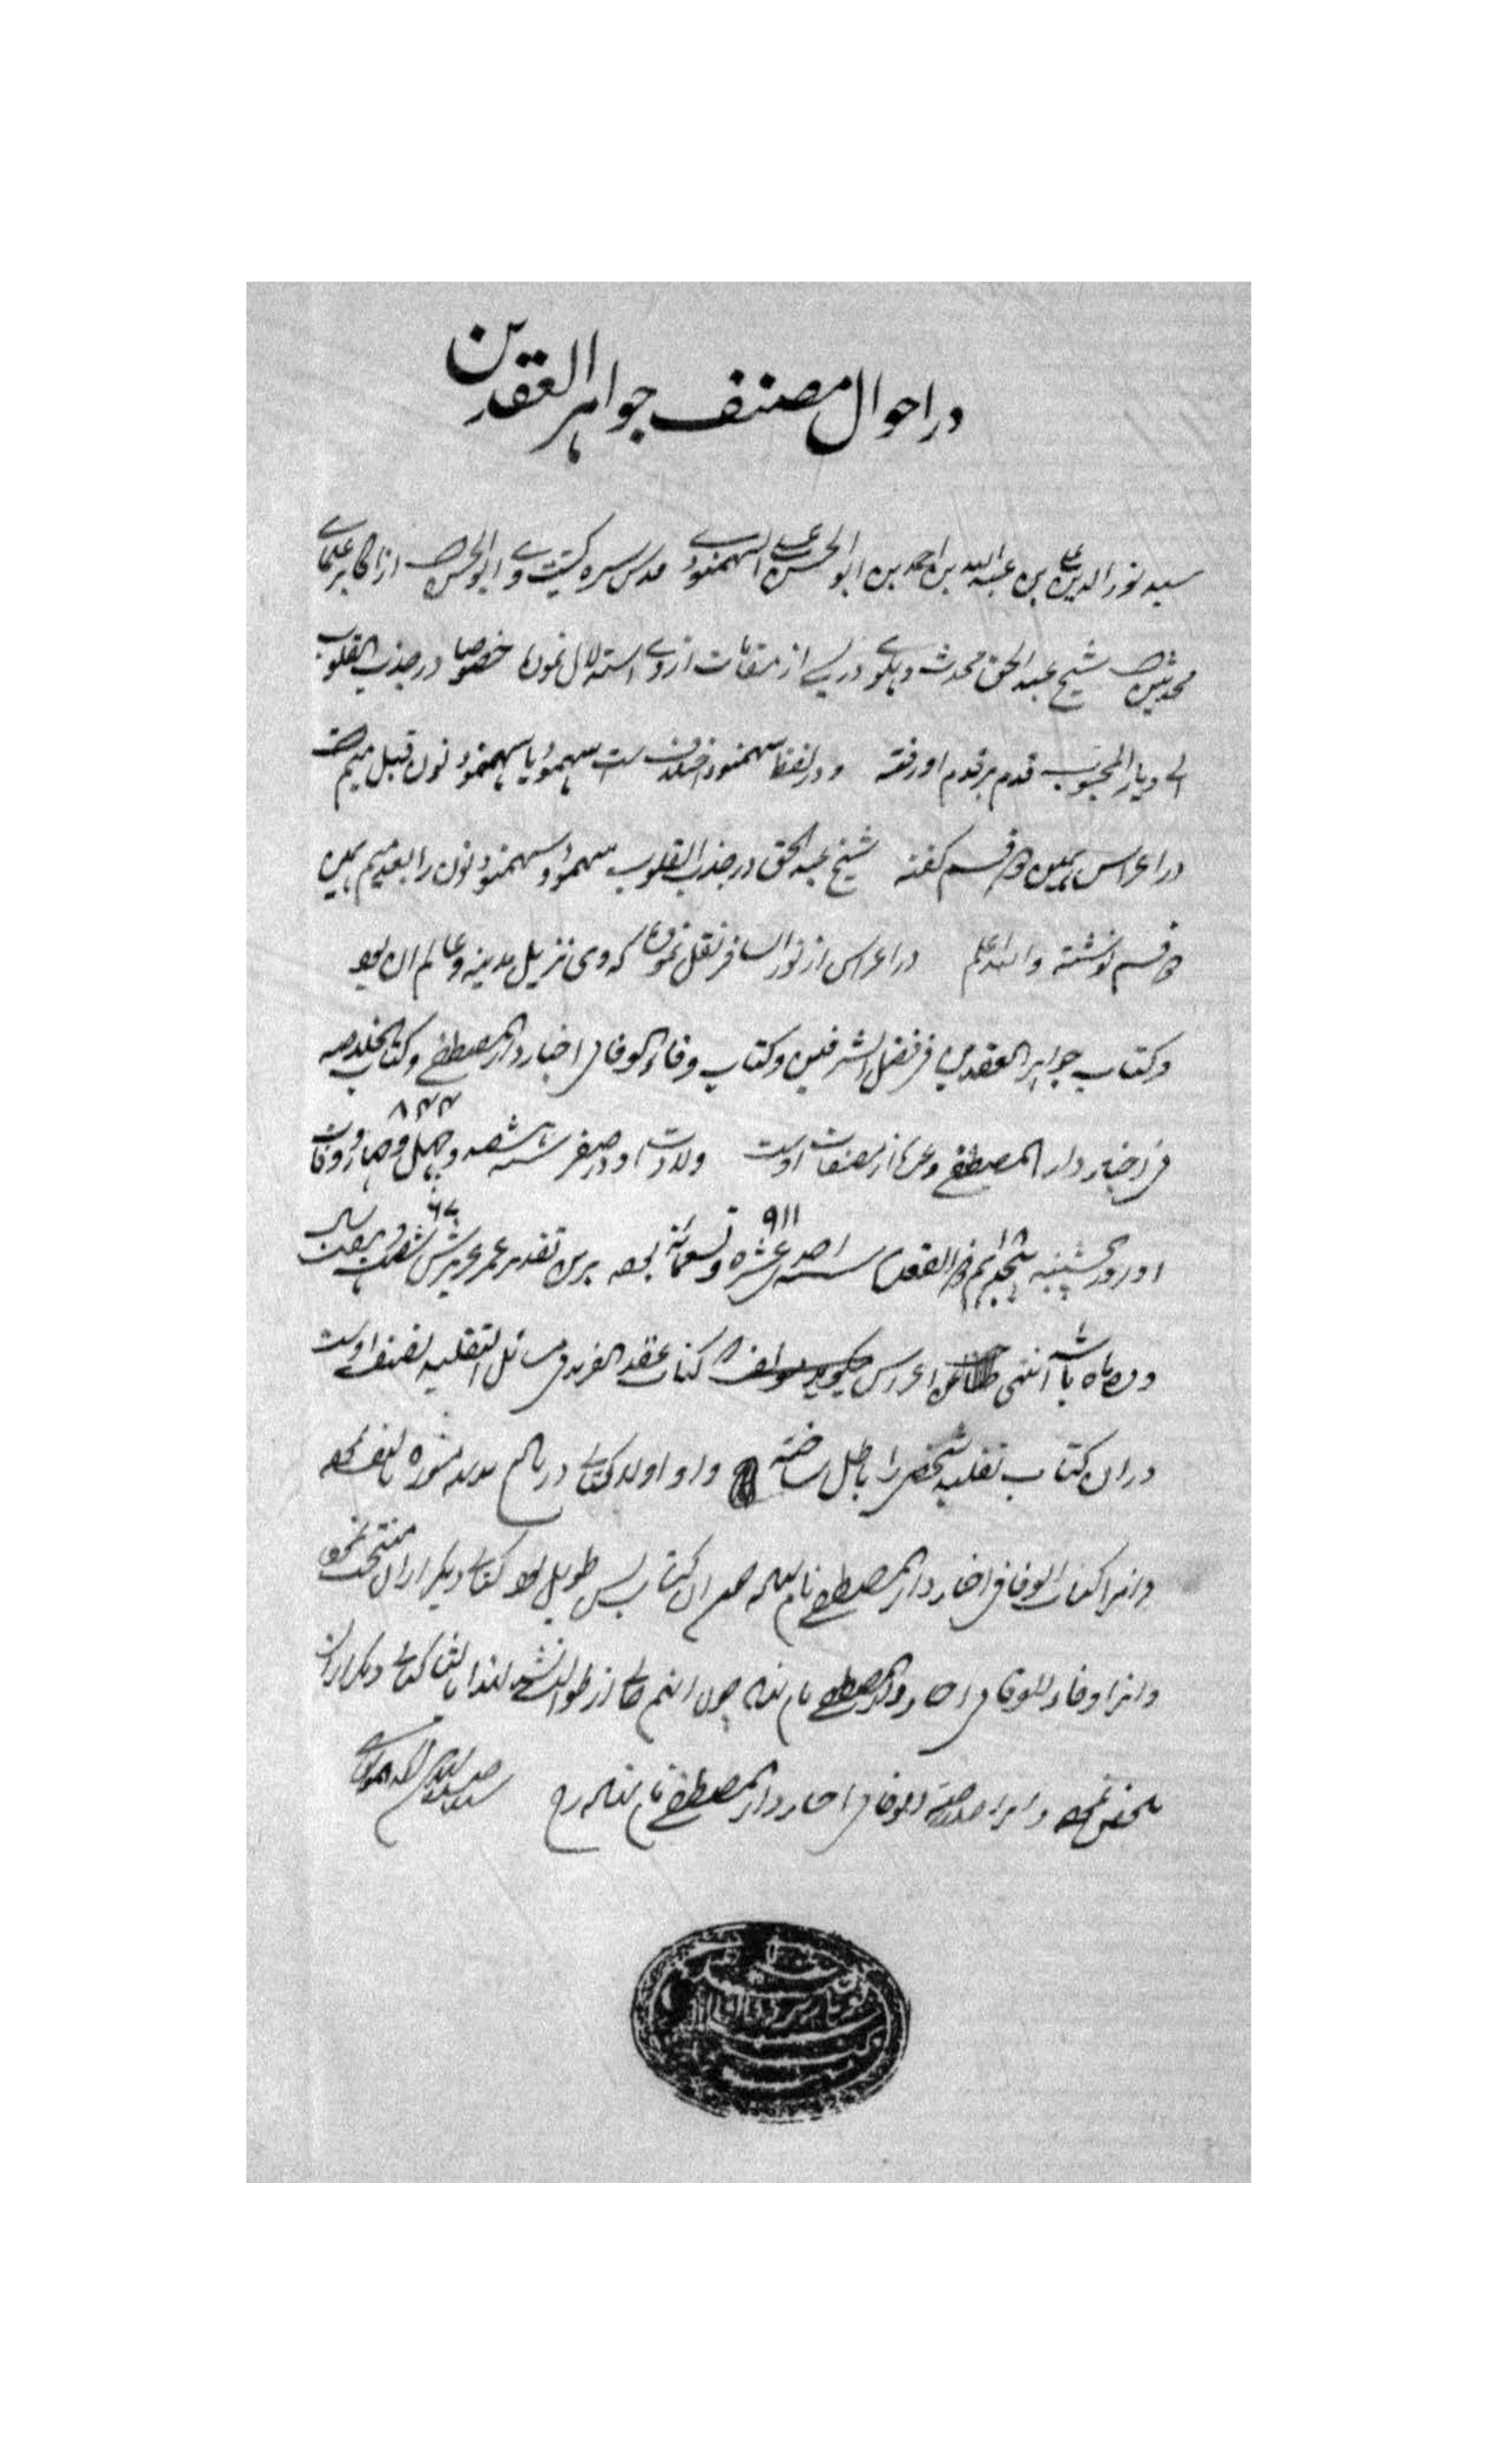 در احوال مصنف جواهر العقدین
سید نور الدین علی بن عبد الله بن احمد بن ابو الحسن علی السمهنودی قدس سره کنیت وی ابو الحسن از اکابر علمای
محدثین شیخ عبد الحق محدث دهلوی در بسے از مقامات ازوی استدلال نموده خصوصا در جذب القلوب
الی دیار المحبوب قدم بر قدم او رفته و در لفظ سمهنود اختلاف ست سمهود یا سهمنود نون قبل میم
در اعراس بهمین دو قسم گفته شیخ عبد الحق در جذب القلوب سمهود و سمهنود نون را بعد میم همین
دو قسم نوشته والله اعلم در اعراس از نور السافر نقل نموده که وی نزیل مدینه و عالم آن بود
و کتاب جواهر العقدین فی فضل الشرفین و کتاب وفاء الوفا فی اخبار دار المصطفی و کتاب خلاصه
فی اخبار دار المصطفی و غیره از مصنفات اوست ولادت او در صفر سنه ۸۴۴ هشتصد و چهل و چهار و وفات
او روز پنجشنبه ذی القعده سنه ۹۱۱ احد عشره و تسعمائة بوده برین تقدیر عمر عزیزش ۶۷ شصت و هفت سال
و ده ماه باشد انتهی اعراس کتاب عقد الفرید فی مسائل التقلید تصنیف اوست
در ان کتاب تقلید شخصی را باطل ساخته و او اولا کتابی در تاریخ مدینه منوره تالیف نموده
و انرا الوفا فی اخبار دار المصطفی نام نهاده ان کتاب بس طویل بود کتابی دیگر از ان منتخب نموده
و انرا وفاء الوفا فی اخبار دار المصطفی نام نهاد چون اینهم خالی از طوالت نشد لهذا کتابی دیگر از ان
ملخص نموده و انرا خلاصة الوفا فی اخبار دار المصطفی نام نهاده